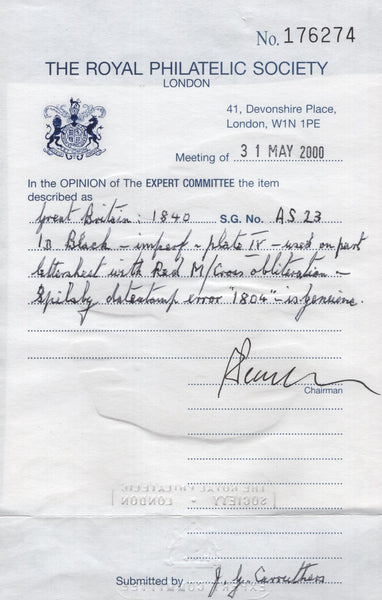 No. 176274
THE ROYAL PHILATELIC SOCIETY
LONDON
41, Devonshire Place,
London, W1N 1PE
Meeting of 31 MAY 2000
In the OPINION of The EXPERT COMMITTEE the item
described as
Great Britain: 1840 S.G. No. AS 23
1D Black - imperf - plate IV - used on part
lettersheet with Red M/Cross obliteration -
Spilsby datestamp error "1804" - is genuine.
Chairman
THE ROYAL PHILATELIC
SOCIETY LONDON
Submitted by J. G. Carruthers
EXPERT COMMITTEE